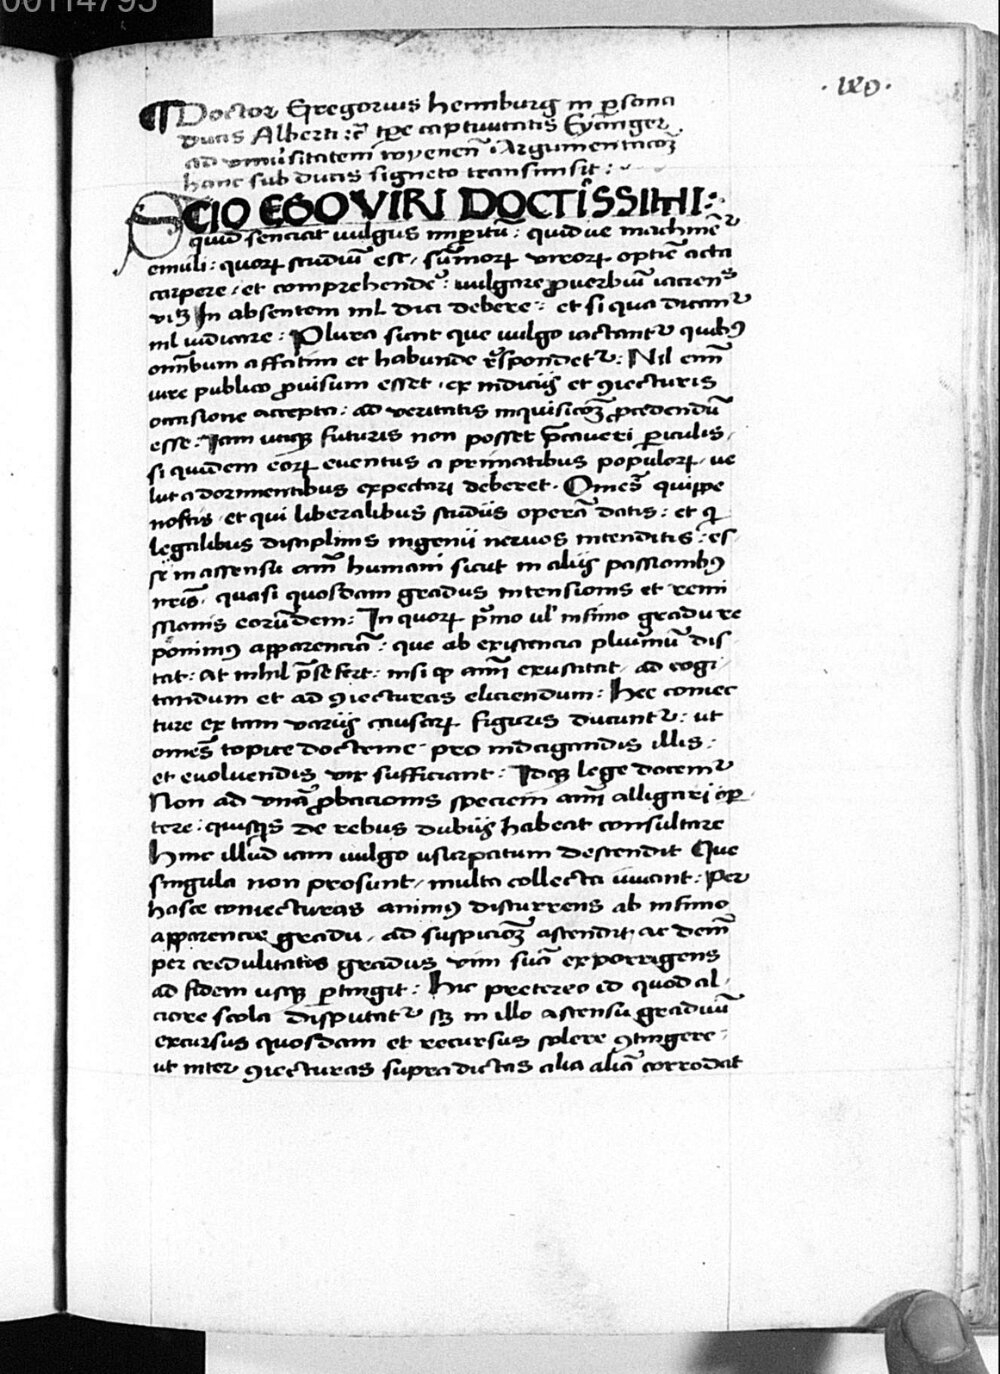 00114795
¶ Doctor Gregorius heimburg in ꝑsona
ducis Alberti :c̄ tꝑe captiuitatis Eyczinger
ad vniuˀsitatem wyenen̄ · Argumentacoꝫ
hanc sub ducis signeto transmisit :
SCIO EGO VIRI DOCTISSIMI :
quid senciat uulgus imꝑitū : quidue machinēᷣ
emuli : quoꝝ studiū est, sum̄oꝝ viroꝝ optīe acta
carpere, et comprehendeˀ : uulgare ꝓuerbiū iacienˢ
vꝫ In absentem nil dici debere : et si qua dicanᷣ
nil iudicare : Plura sunt que uulgo iactantᷣ quibꝰ
omībus affatim et habunde rˀspondetᷣ : Nil enī
iure publico ꝓuisum esset, ex indicijs et ꝯiecturis
occasione accepta : ad veritatis inquisicoꝫ ꝓcedendū
esse : Nam utiqꝫ futuris non posset p̄caueri ꝑiculis,
si quidem eoꝝ euentus a primatibus populoꝝ, ue
lut a dormientibus expectari deberet · Om̄es quippe
nostis, et qui liberalibus studiis operā datis : et qͥ
legalibus disciplinis ingenii neruos intenditis : es
se in assensu aīm humani sicut in alijs passionibꝰ
nrīs, quasi quosdam gradus intensionis et remi
ssionis eorūdem : In quoꝝ pͥmo ulˀ infimo gradu re
ponimꝰ apparenciā : que ab existencia plurimū dis
tat : at nihil p̄sefert : nisi qͫ aīm exuscitat, ad cogi,
tandum et ad ꝯiecturas eliciendum : Hec coniec
ture ex tam varijs causaꝝ figuris ducuntᷣ : ut
om̄es topice doctrine, pro indagandis illis :
et euoluendis vix sufficiant : Idqꝫ lege docemᷣ
Non ad vnā ꝓbacionis speciem aīm alligari opͬ,
tere : quisqͥs de rebus dubijs habeat consultare
Hinc illud iam uulgo usurpatum descendit Que
singula non prosunt, multa collecta iuuant : Per
hasce coniecturas animꝰ discurrens ab infimo
apparencie gradu, ad suspicioꝫ ascendit, ac demͫ
per credulitatis gradus vim suā exporrigens
ad fidem usqꝫ ꝑtingit : Hic pretereo id quod al,
ciore scola disputatᷣ sꝫ in illo ascensu graduū
excursus quosdam et recursus solere ꝯtingere,
ut inter ꝯiecturas supradictas alia aliā corrodat